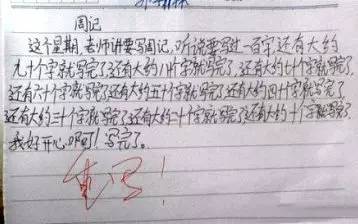 周记
这个星期,老师讲要写周记,听说要写过一百字还有大约
九十个字就写完了还有大约八十个字就写完了,还有大约七十个字就写完了
还有六十个字就写完了还有大约五十个字就写完了还有大约四十个字就写完了
还有大约三十个字就写完了还有大约二十个字就写完了还有大约十个字就写完了.
我好开心啊!写完了。
重写!